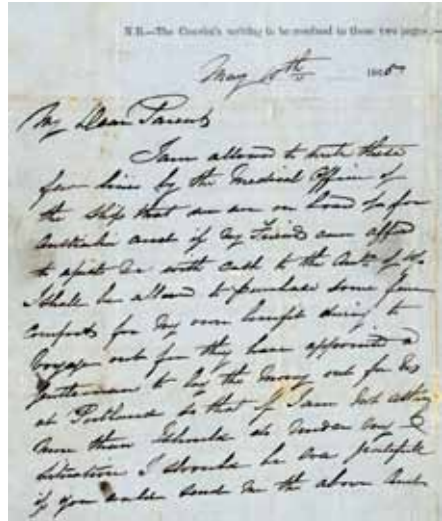 N.B.—The Convict's writing to be confined to these two pages.—
May 10th 186
My Dear Parents
I am allowed to write these
few lines by the Medical Officer of
the Ship that we are on board of for
Australia and if my Friends can afford
to assist me with cash to the Amt of
I shall be allowed to purchase some few
comforts for my own benefit during the
Voyage out for they have appointed a
Gentleman to lay the money out for us
at Portland so that if I am not asking
more than I should do under my
situation I should be ever grateful
if you could send me the above Amt